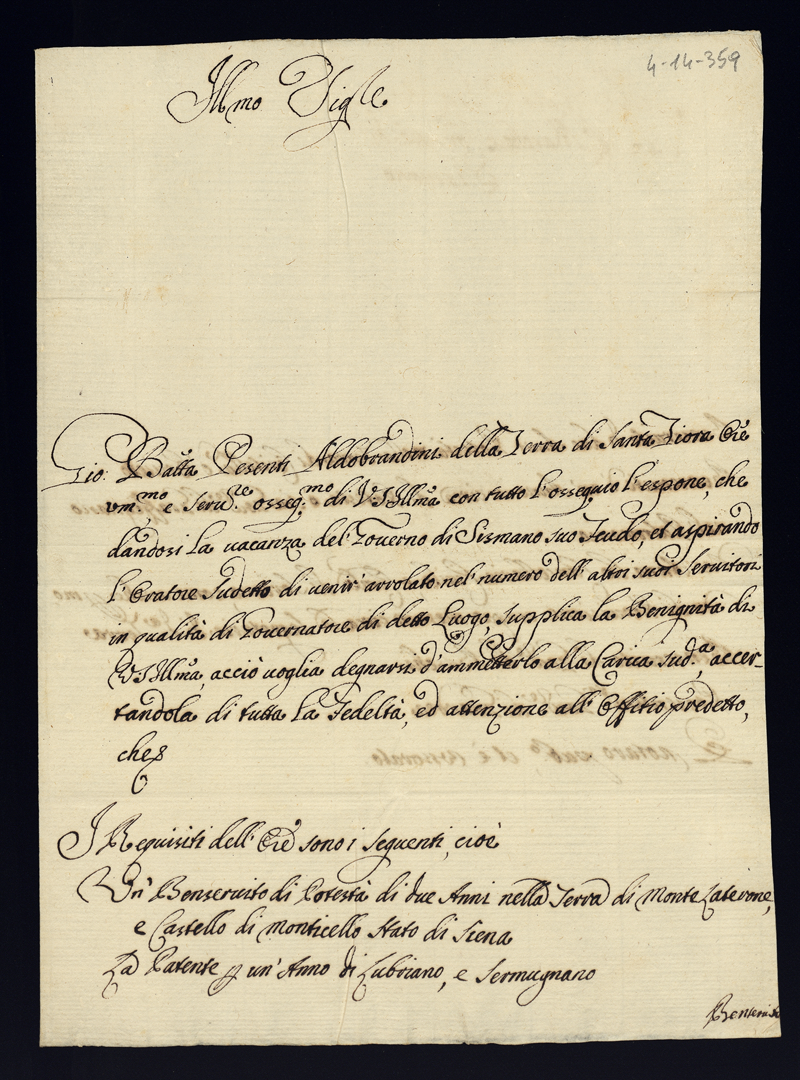 4-14-359
Illmo Sigre
Gio: Batta Pesenti Aldobrandini della Terra di Santa Fiora Ore
vm.mo e Serv.re osseq.mo di VSIllma con tutto l'ossequio l'espone, che
dandosi la vacanza del Governo di Sismano suo Feudo, et aspirando
l'Oratore sudetto di venir' arrolato nel numero dell'altri suoi Servitori
in qualità di Governatore di detto Luogo, supplica la Benignità di
VSIllma, acciò voglia degnarsi d'ammetterlo alla Carica sud.a, accer-
tandola di tutta la Fedeltà, ed attenzione all'Offitio predetto,
che
I Requisiti dell'Ore sono i seguenti, cioè
Un' Benservito di Potestà di due Anni nella Terra di Monte Laterone,
e Castello di Monticello Stato di Siena
La Patente p un'Anno di Lubriano, e Sermugnano
Benservito